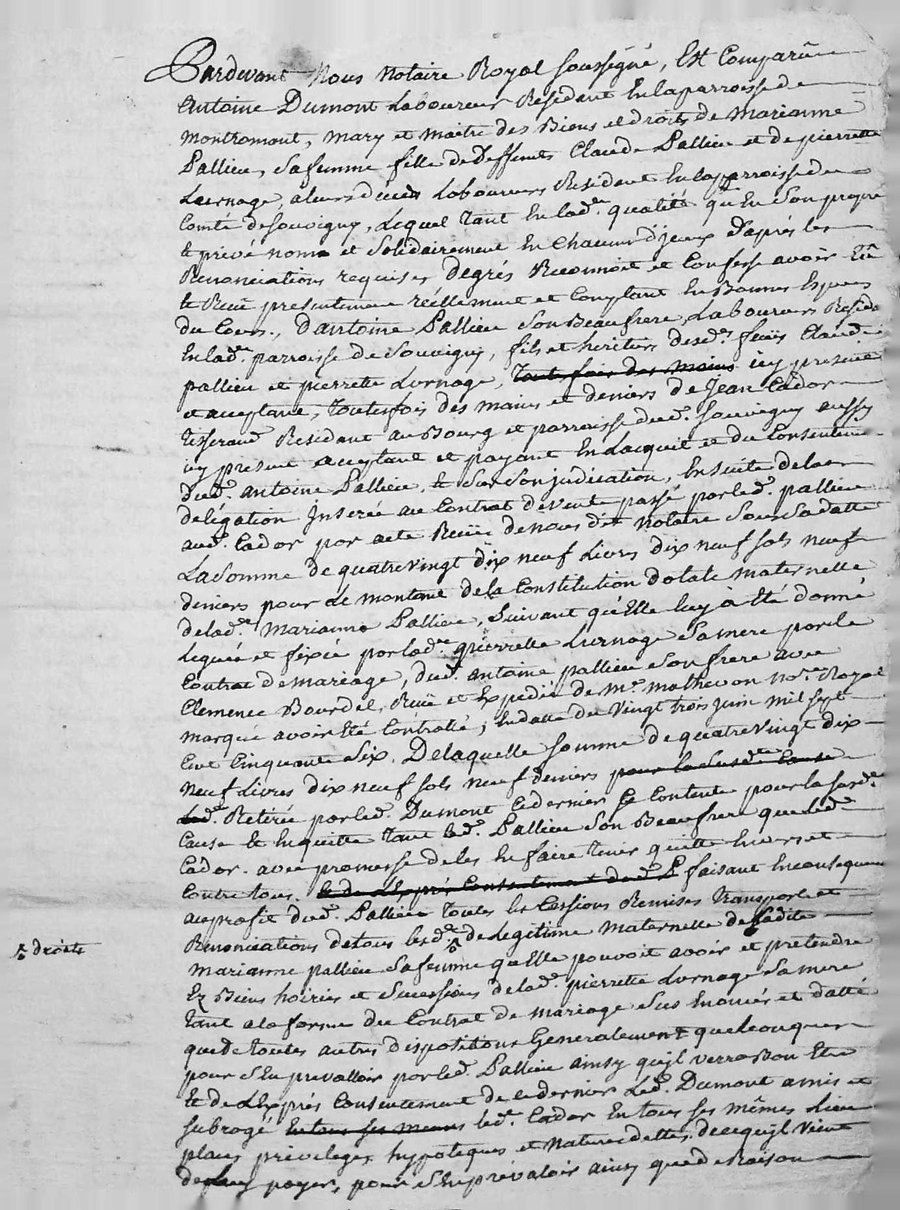 Pardevant Nous Notaire Royal soussigné, Est Comparû
Antoine Dumont Laboureur Résidant En la parroisse de
Montromant, mary et maitre des Biens et droits de Marianne
Pallieu, sa femme fille de deffunts Claude Pallieu et de pierrette
Lurnage, a leurs décès Laboureurs Résidant En la parroisse de
Comté de Souvigny, Lequel tant En lad.e qualité qu'En son propre
et privé nom et Solidairement En Chacun d'yceux d'après les
Renonciations requises de grés Reconnoit et Confesse avoir Eû
et Reçû presentement réellement et Comptant En Bonnes Especes
du Cours, d'antoine Pallieu Son Beaufrere, Laboureur Résidt
En lad.e parroisse de Souvigny, fils et heritier desd.s feus Claude
pallieu et pierrette Lurnage, toute fois des mains icy present
et acceptant, Toutesfois des mains et deniers de Jean Cador
Tisserand Résidant au Bourg et parroisse dud. Souvigny aussy
icy present acceptant et payant En Lacquit et du Consentemt
dud. antoine Pallieu, et Sur Son judication, En suite de la
delégation Inserée au Contrat de vente passé par led. pallieu
aud. Cador par acte Reçû de nous dit Notaire Sous Sa datte
La Somme de quatre vingt dix neuf Livres dix neuf sols neuf
deniers pour Le montant de la Constitution dotale maternelle
de lad.e Marianne Pallieu, Suivant qu'Elle luy à Eté donné
Leguée et fixée par lad.e pierrette Lurnage Sa mere par le
Contrat de mariage, dud. antoine pallieu Son frere avec
Clemence Bourdel, Reçû et Expedié de M.e mathevon no.re Royal
marqué avoir Eté Controllé, En datte du Vingt trois juin mil sept
Cent Cinquante Six. De laquelle Somme de quatre vingt dix
neuf Livres dix neuf sols neuf deniers pour la susd.e Cause
led. Retirée par led. Dumont Ce dernier Se Contente pour la susd.e
Cause Et En quitte tant led. Pallieu Son Beaufrere que led.
Cador avec promesse de les En faire tenir quitte Envers et
Contre tous. Et de L'Exprés Consentement dud. P faisant En consequence
au profit dud. Pallieu toutes les Cessions Remises Transport et
Renonciations de tous lesd. de Legitime maternelle de Ladite
droits
Marianne pallieu Sa femme qu'elle pouvoit avoir et pretendre
Ez Biens hoiries et Sucessions de lad.e pierrette Lurnage Sa mere
tant a la forme du Contrat de mariage Sus Enoncés et datté
que de toutes autres dispositions Generalement quelconques
pour S'En prevalloir par led. Pallieu ainsy qu'yl verra Bon Etre
Et de L'Exprés Consentement de ce dernier Led. Dumont a mis et
Subrogé En tous ses memes led. Cador En tous Ses mêmes Lieu
places privileges hypoteques et Natures dettes de ce qu'yl vient
de payer, pour S'En prévaloir ainsy que de Raison